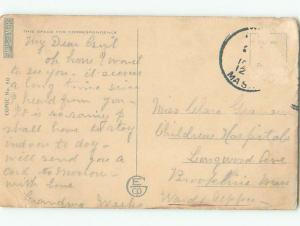 THIS SPACE FOR CORRESPONDENCE
My Dear Girl
oh how I want
to see you - it seems
a long time since
heard from you -
It is so rainy I
shall have to stay
indoor to day -
will send you a
Card to morrow -
with love
Grandma
12
MAS
Miss Clara
Childrens Hospital
Longwood Ave
Brookline Mass
Ward Upper
E G CO